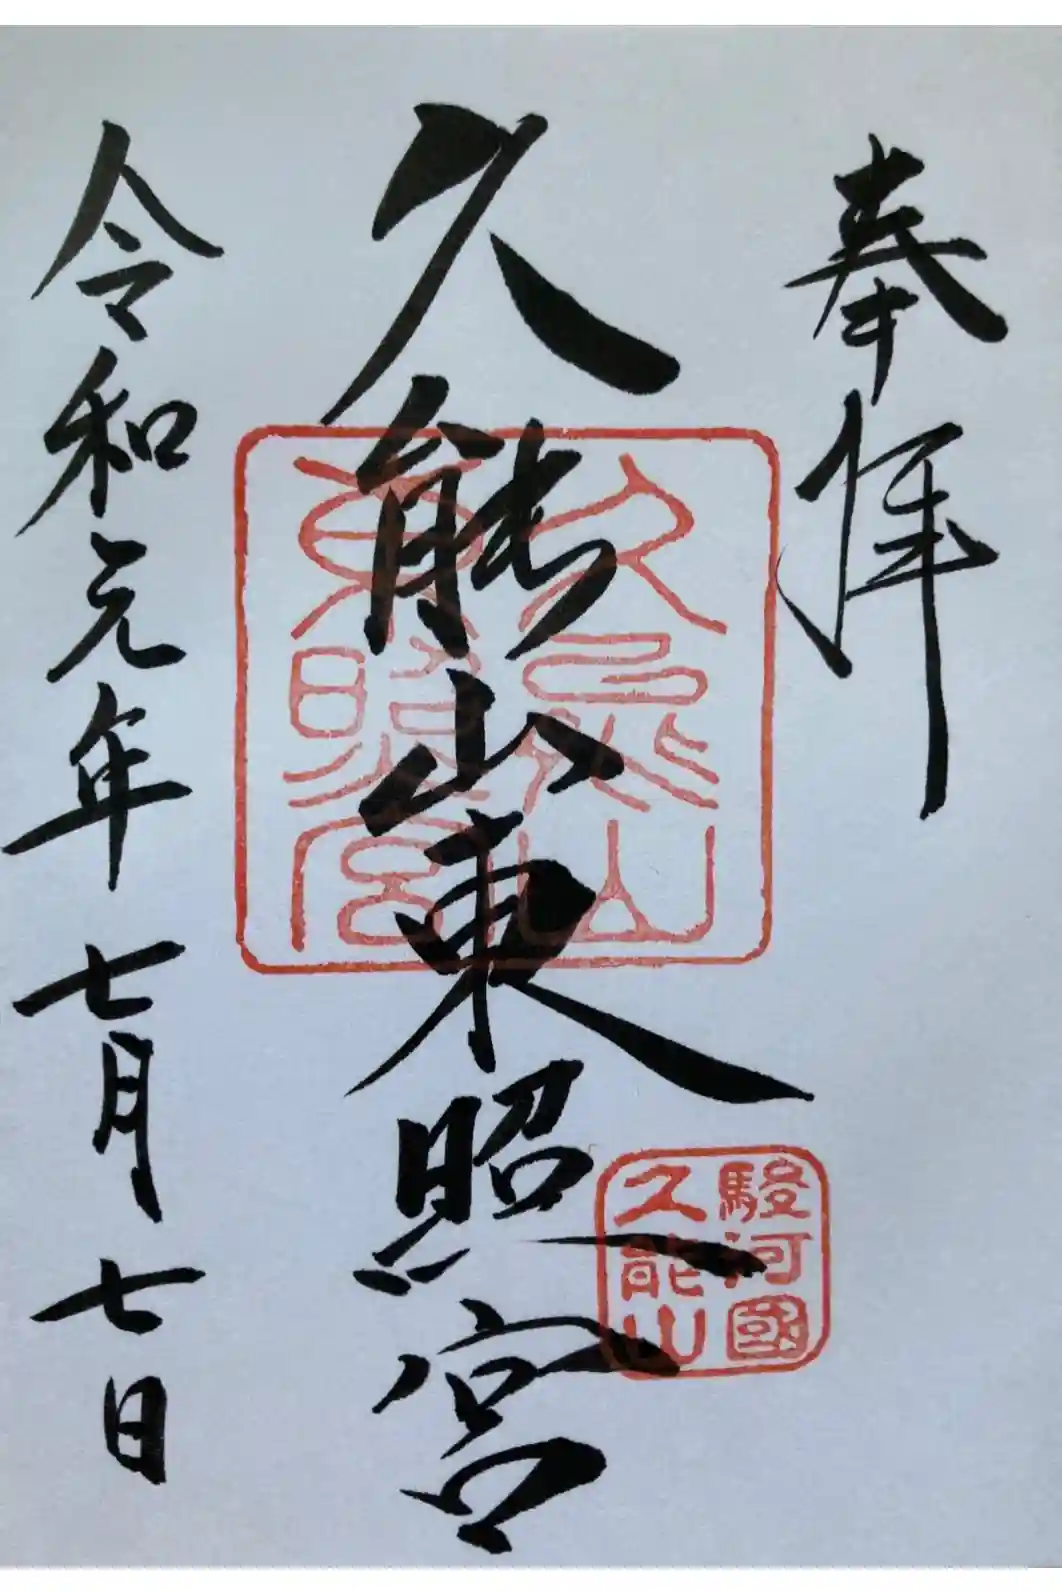 奉拝
久能山東照宮
久能山
東照宮
駿河國
久能山
令和元年七月七日